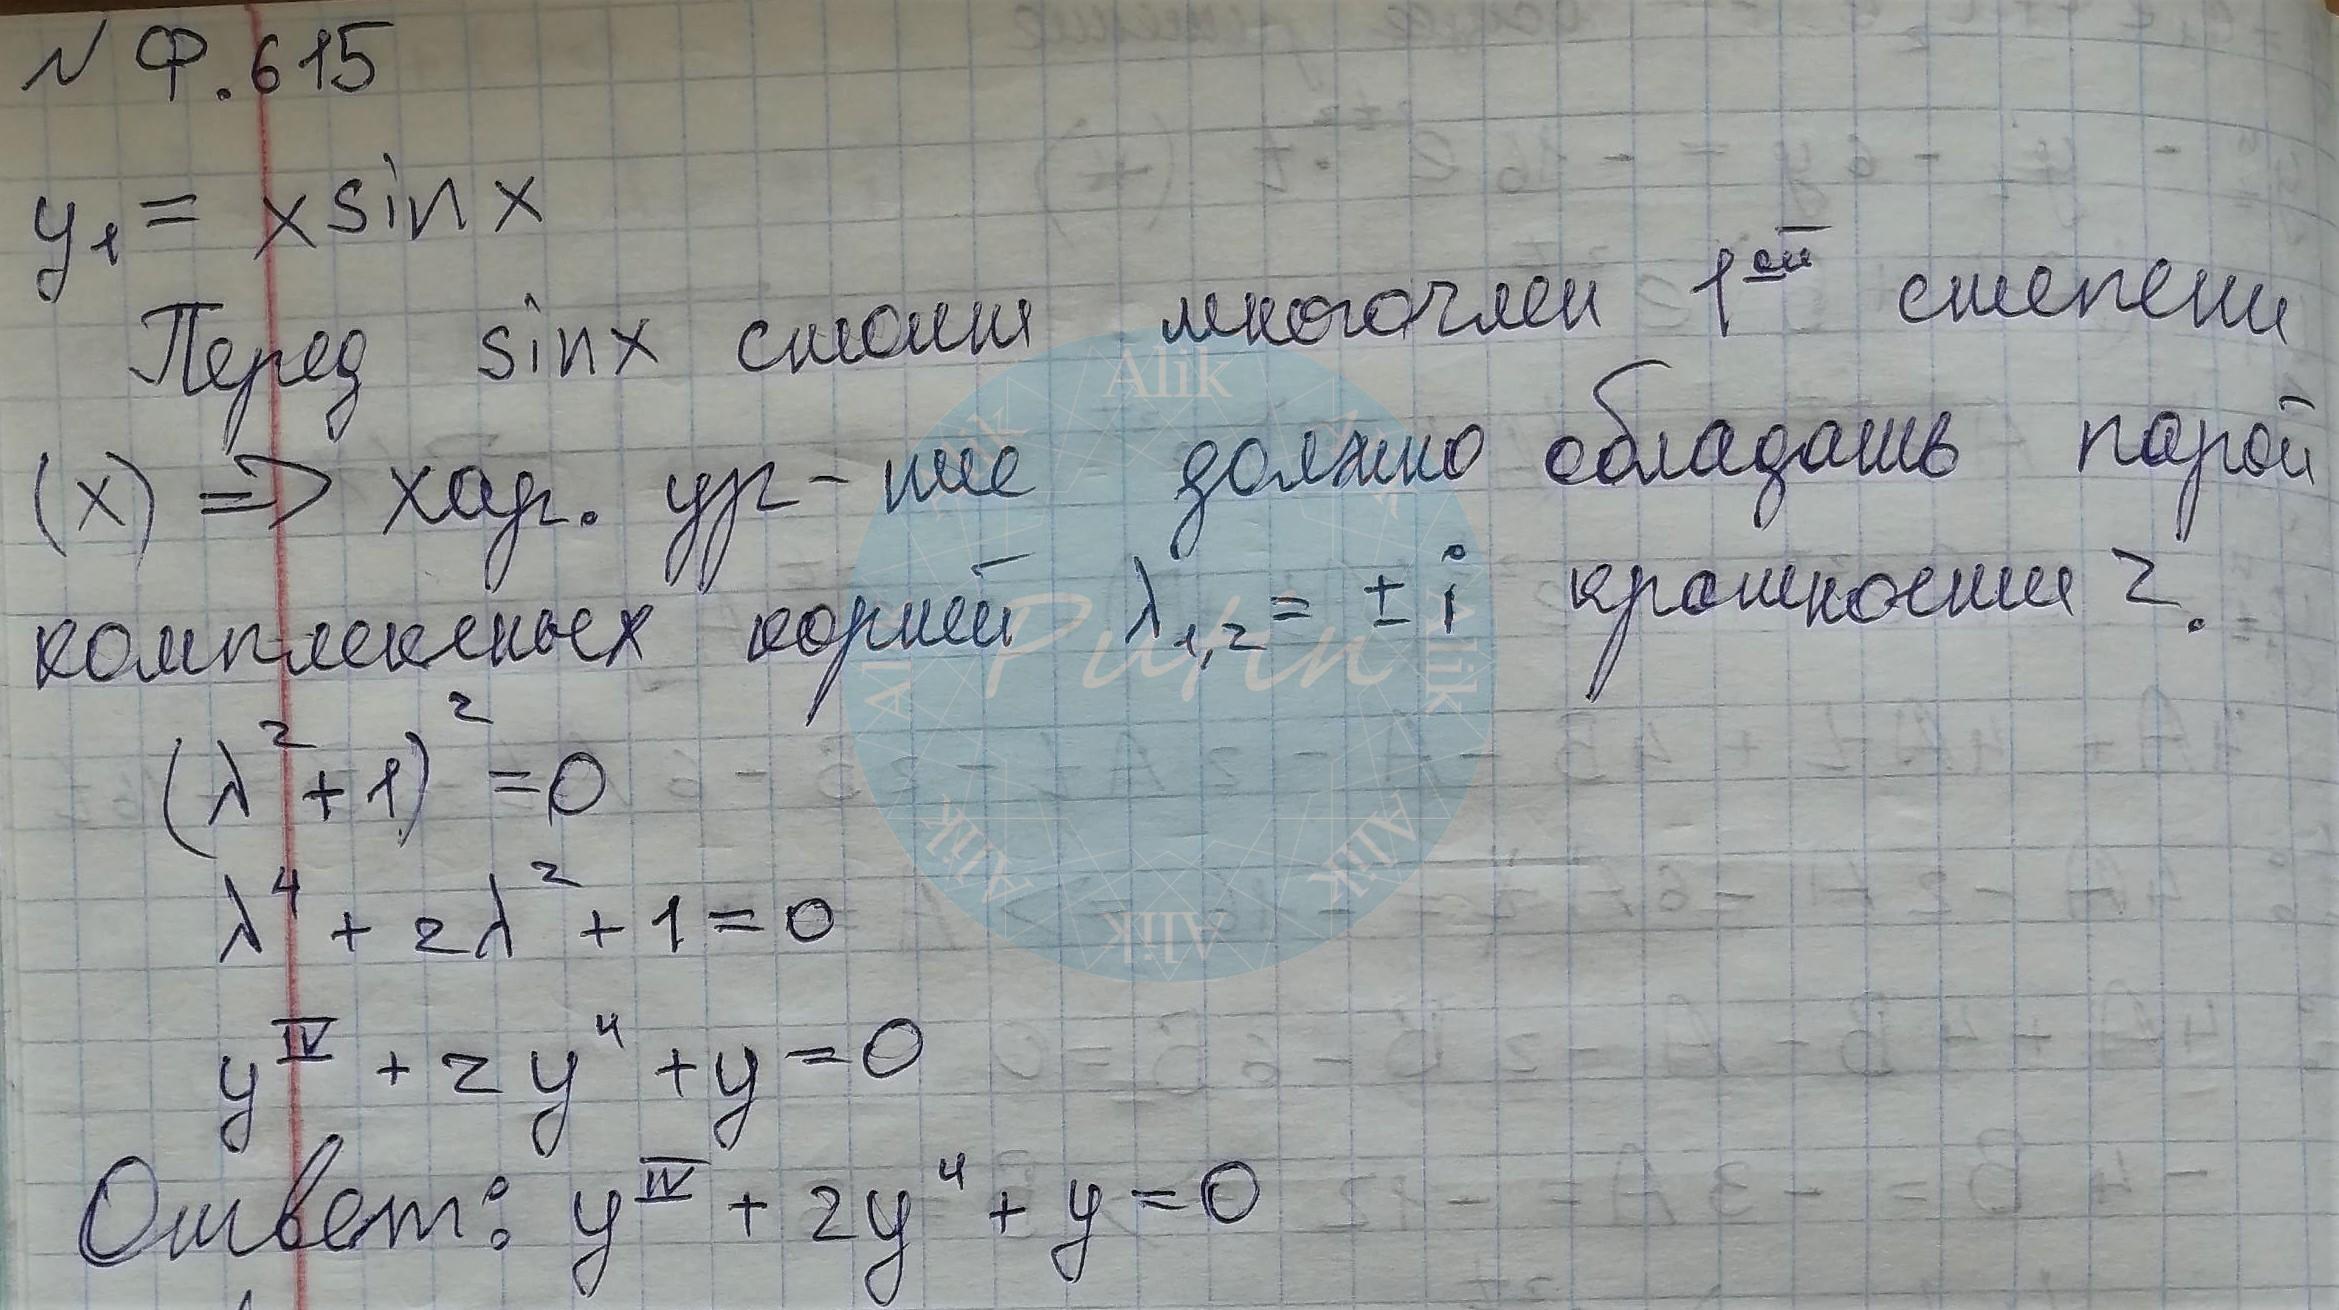 № Ф.615
y₁ = x sin x
Перед sin x стоит многочлен 1ой степени
(x) => хар. ур-ние должно обладать парой
комплексных корней λ₁,₂ = ± i кратности 2.
(λ² + 1)² = 0
λ⁴ + 2λ² + 1 = 0
y^IV + 2y'' + y = 0
Ответ: y^IV + 2y'' + y = 0
Alik
Alik
Alik
Alik
Alik
Alik
Alik
Alik